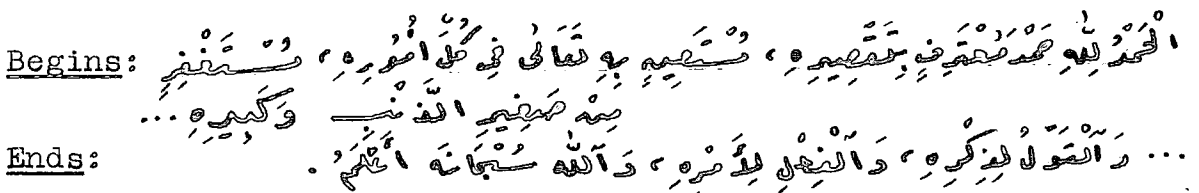 Begins: الْحَمْدُ لِلّٰهِ حَمْدَ مُعْتَرِفٍ بِتَقْصِيرِهِ، مُسْتَعِينٍ بِهِ تَعَالَى فِي كُلِّ أُمُورِهِ، مُسْتَغْفِرٍ
مِنْ صَغِيرِ الذَّنْبِ وَكَبِيرِهِ...
Ends: ... وَالْقَوْلُ لِذِكْرِهِ، وَالْفِعْلِ لِأَمْرِهِ، وَاللّٰهُ سُبْحَانَهُ أَعْلَمُ.